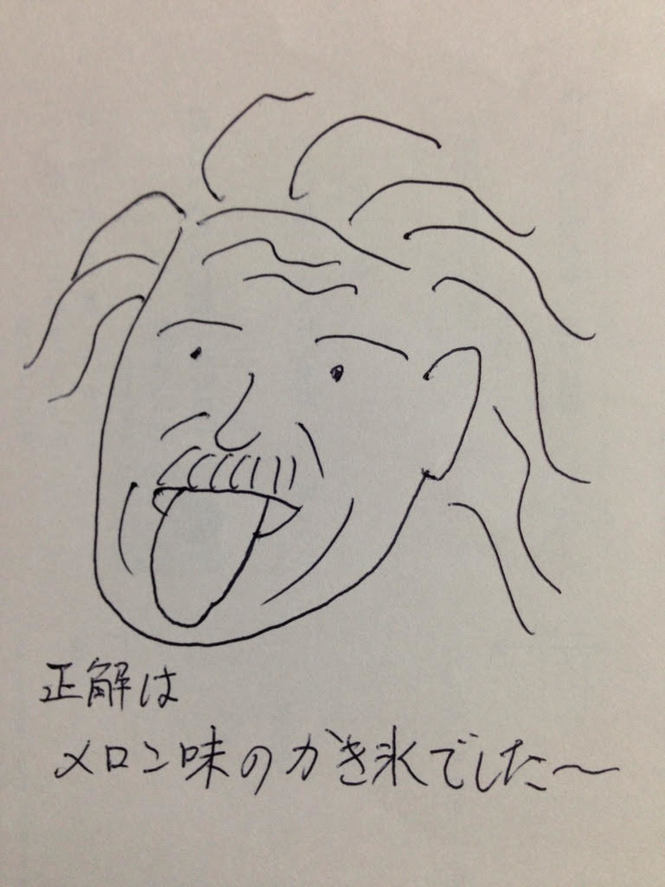 正解は
メロン味のかき氷でした〜